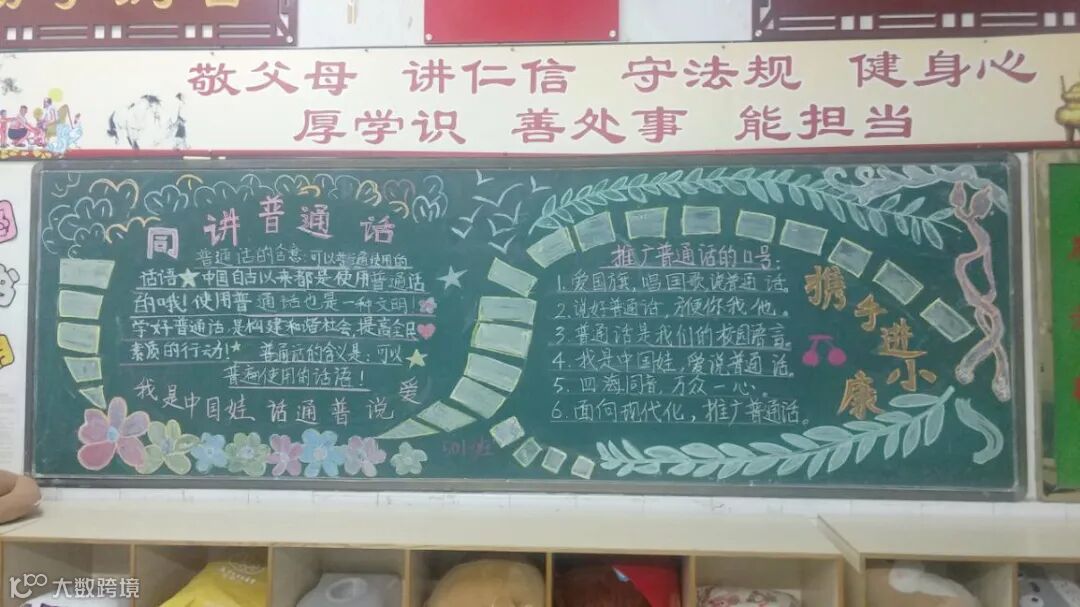 敬父母 讲仁信 守法规 健身心
厚学识 善处事 能担当
同讲普通话
普通话的含意:可以普遍使用的
话语★中国自古以来都是使用普通话
的哦!使用普通话也是一种文明!
学好普通话,是构建和谐社会,提高全民
素质的行动!★ 普通话的含义是:可以
普遍使用的话语!
我是中国娃 话通普说爱
501班
推广普通话的口号:
1.爱国旗,唱国歌说普通话。
2.说好普通话,方便你我他。
3.普通话是我们的校园语言。
4.我是中国娃,爱说普通话。
5.四海同音,万众一心。
6.面向现代化,推广普通话。
携手进小康
大数跨境